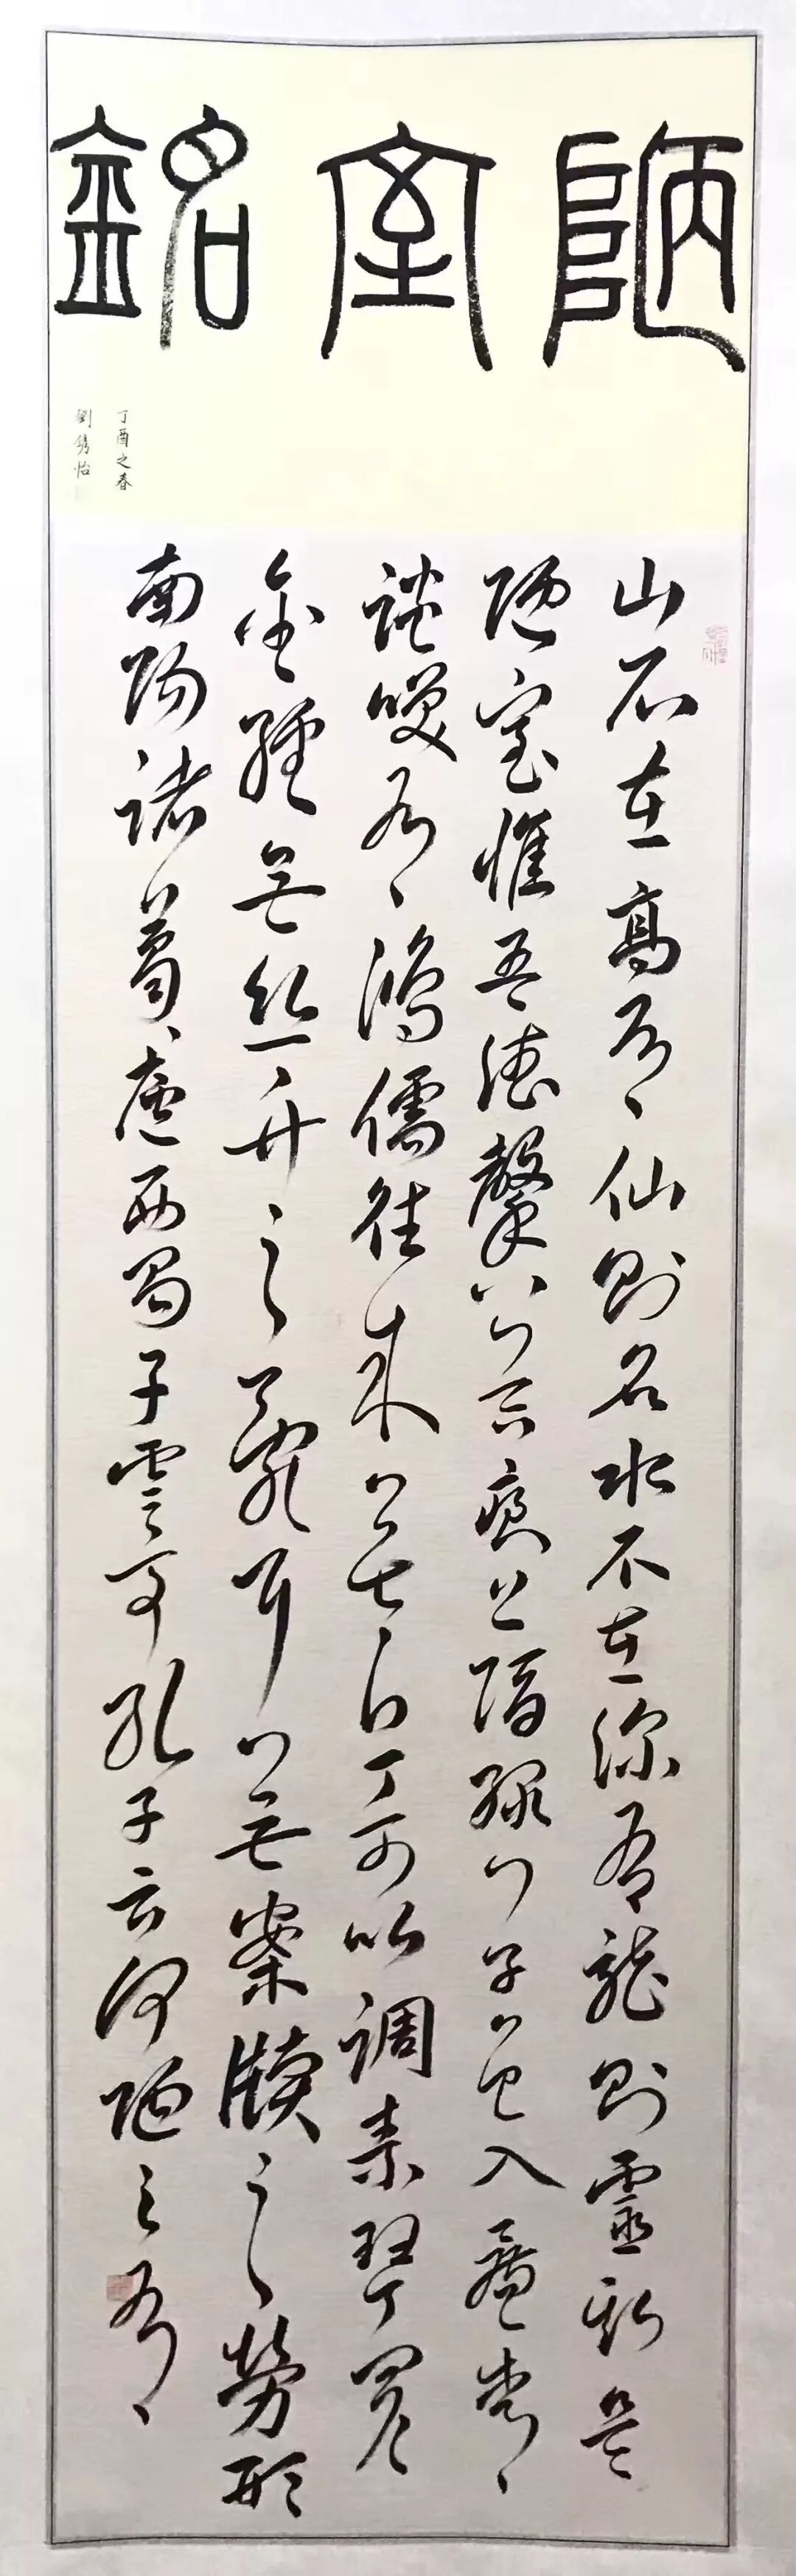 陋室銘
丁酉之春
劉怡
山不在高有仙則名水不在深有龍則靈斯是
陋室惟吾德馨苔痕上階綠草色入簾青
談咲有鴻儒往來無白丁可以調素琴閱
金經無絲竹之亂耳無案牘之勞形
南陽諸葛廬西蜀子雲亭孔子云何陋之有